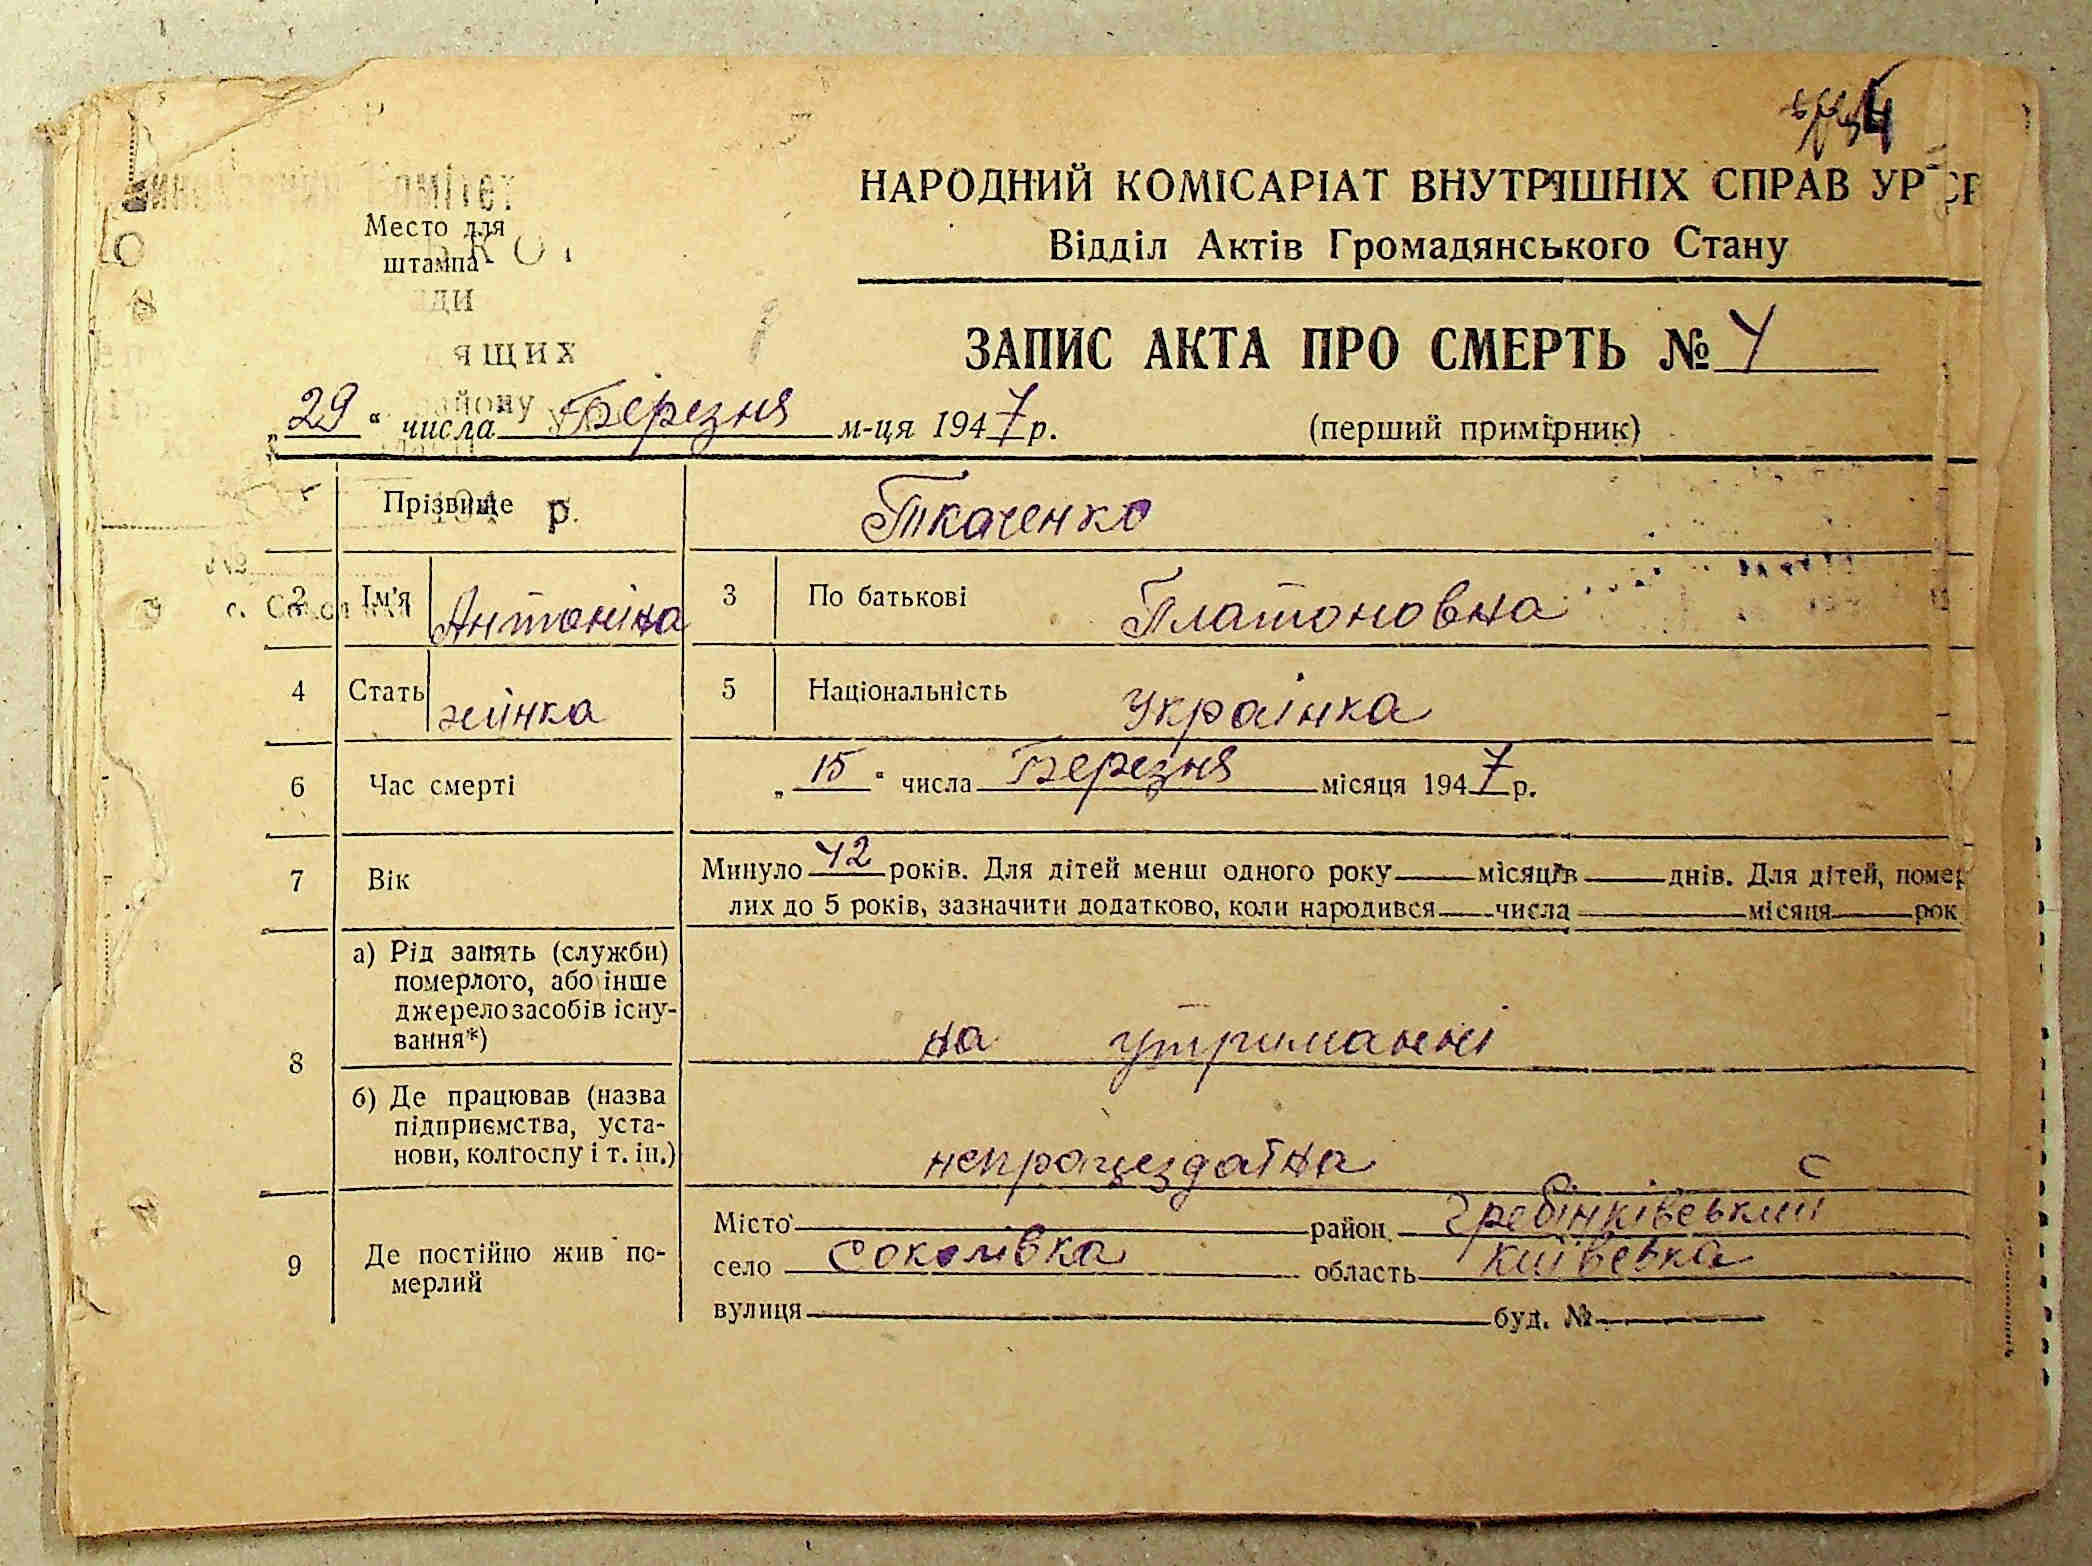 Место для
штампа
НАРОДНИЙ КОМІСАРІАТ ВНУТРІШНІХ СПРАВ УРСР
Відділ Актів Громадянського Стану
ЗАПИС АКТА ПРО СМЕРТЬ № 4
ящих
району
„29“ числа Березня м-ця 1947 р.
(перший примірник)
Прізвище
р.
Ткаченко
2 Ім'я Антоніна 3 По батькові Платоновна
4 Стать жінка 5 Національність українка
6 Час смерті „15“ числа Березня місяця 1947 р.
7 Вік Минуло 42 років. Для дітей менш одного року місяців днів. Для дітей, помер
лих до 5 років, зазначити додатково, коли народився числа місяця рок
8 а) Рід занять (служби)
померлого, або інше
джерело засобів існу-
вання*)
на утриманні
б) Де працював (назва
підприємства, уста-
нови, колгоспу і т. ін.)
непрацездатна
9 Де постійно жив по-
мерлий
Місто район Гребінківський
село Соколівка область Київська
вулиця буд. №